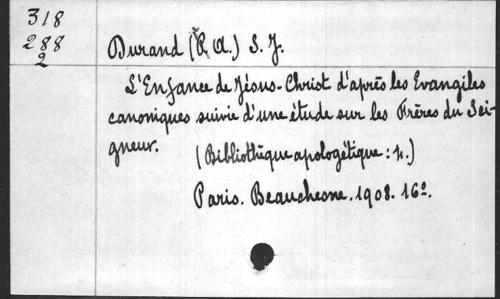 318
288
2
Durand (R A.) S. J.
L'Enfance de Jésus-Christ d'après les Evangiles
canoniques suivie d'une étude sur les Frères du Sei-
gneur.
(Bibliothèque apologétique: 4.)
Paris. Beauchesne. 1908. 16º.